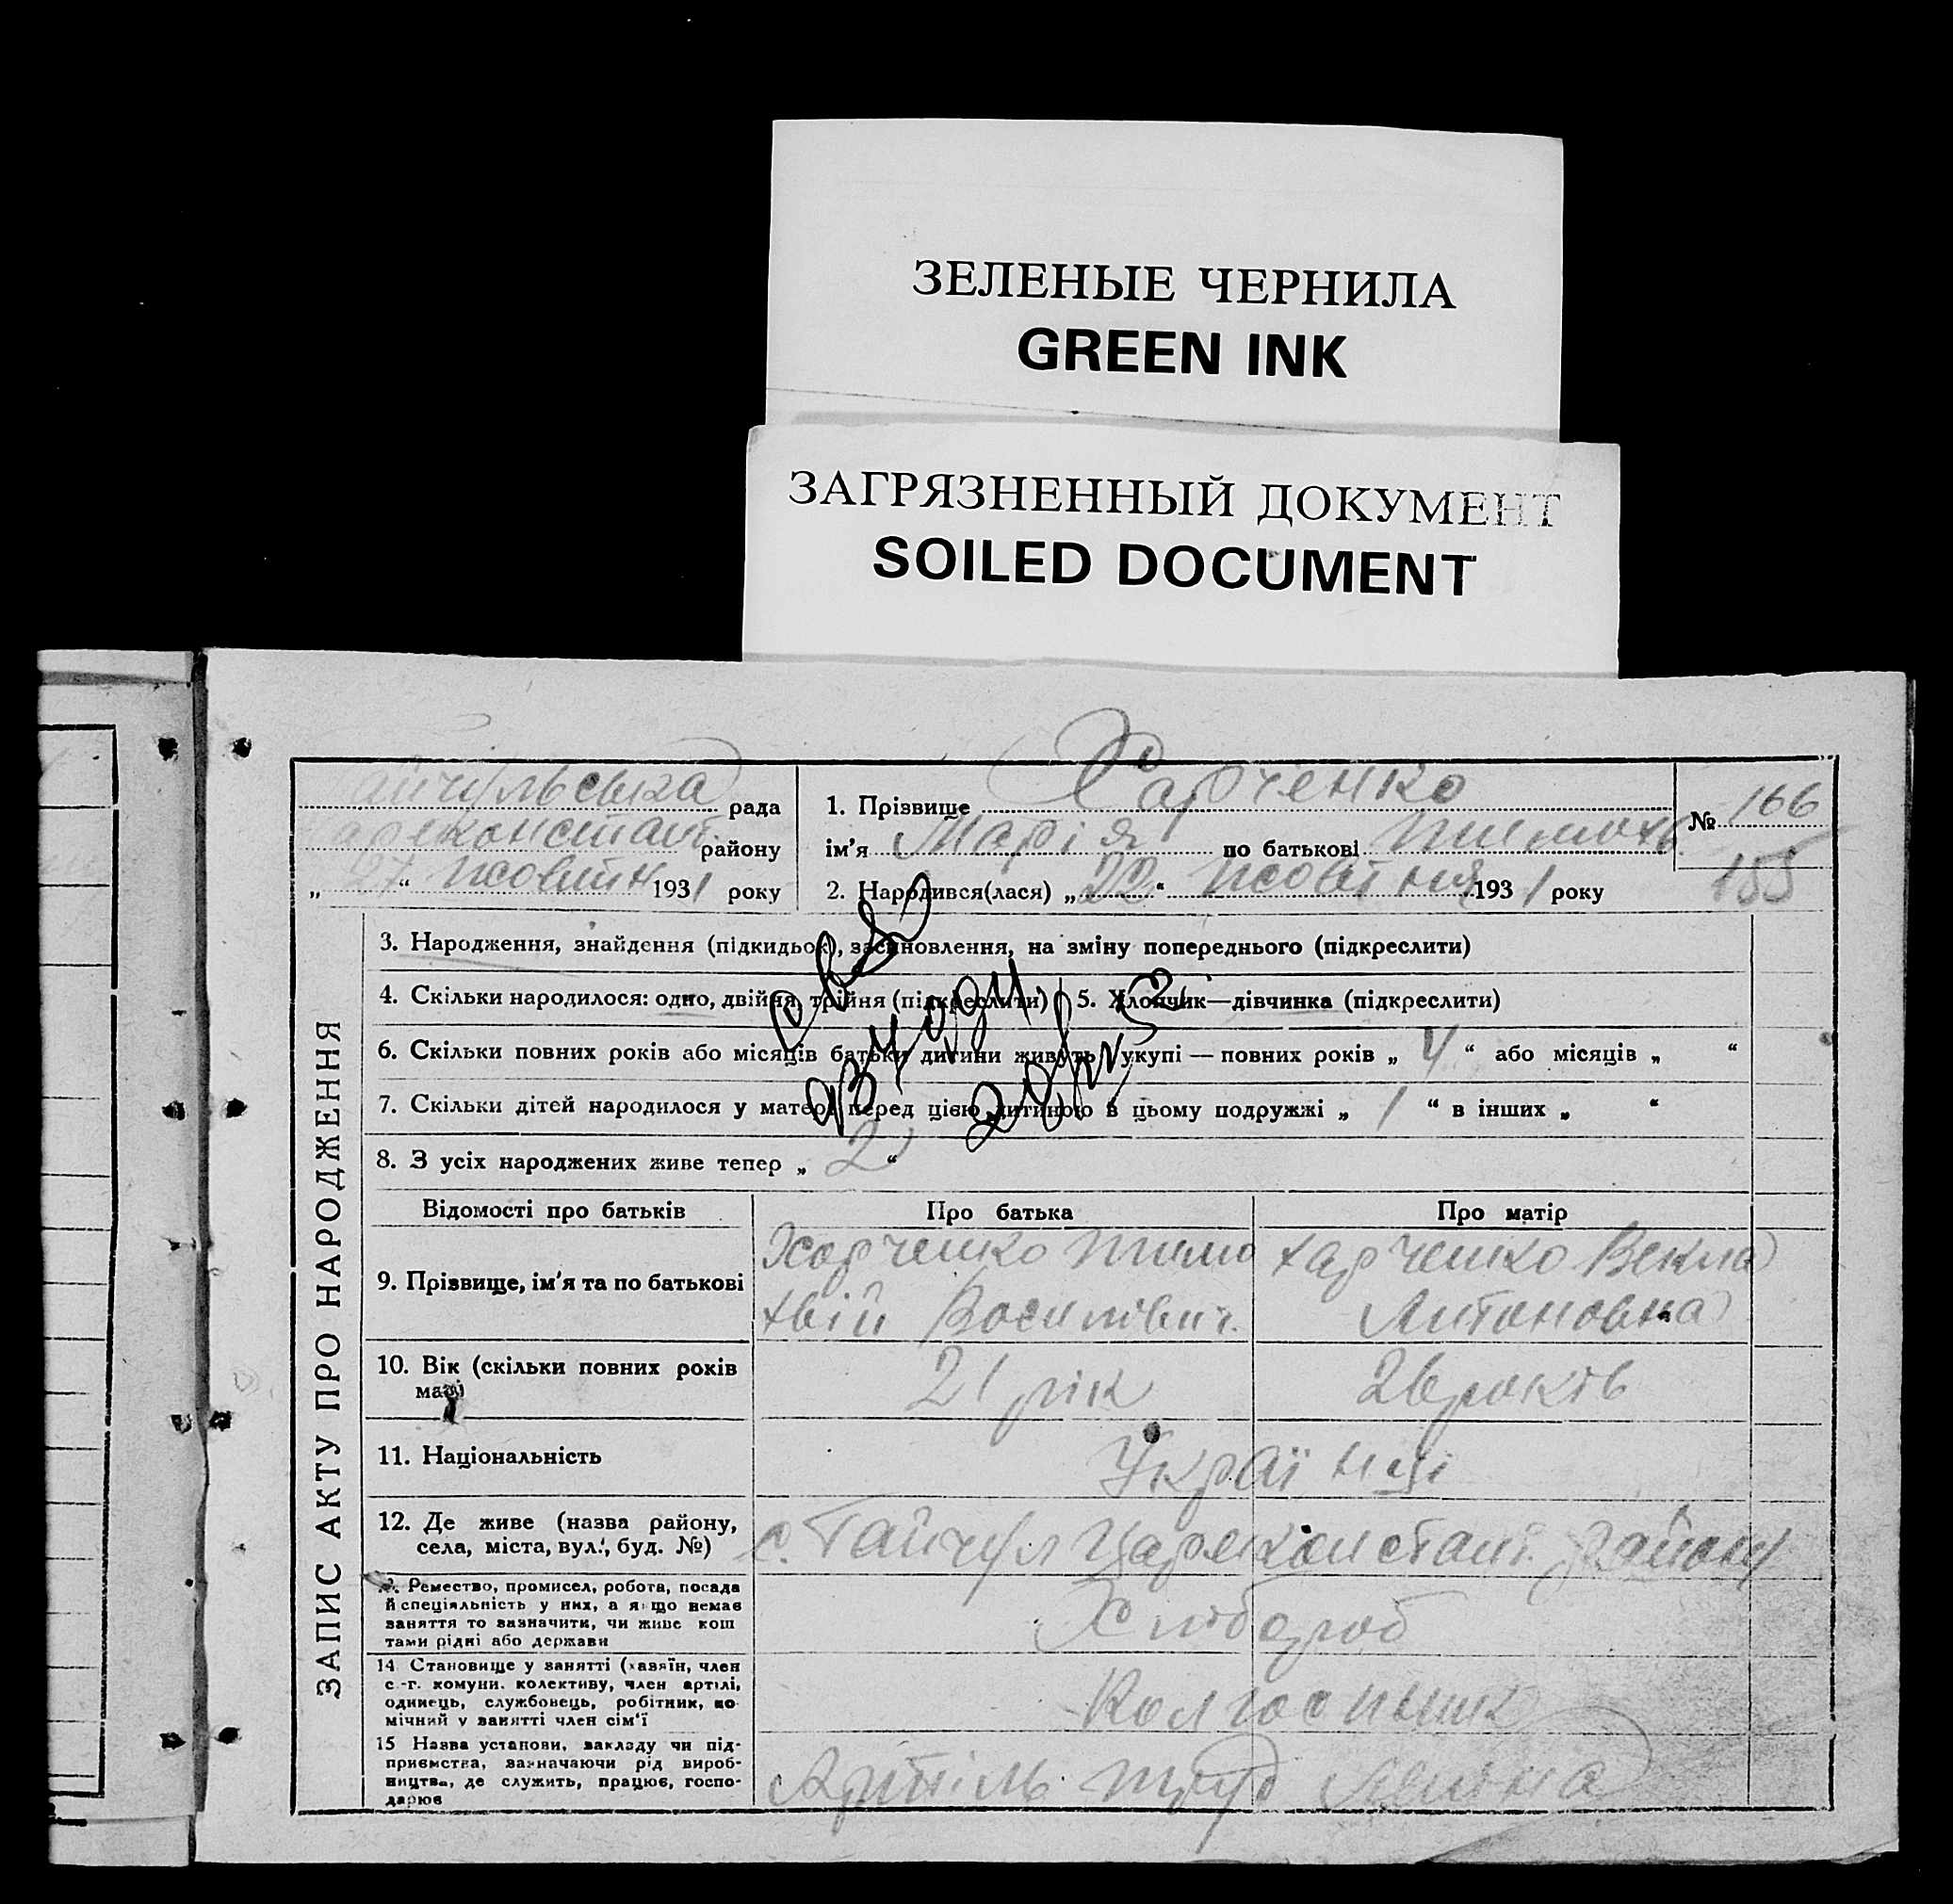 ЗЕЛЕНЫЕ ЧЕРНИЛА
GREEN INK
ЗАГРЯЗНЕННЫЙ ДОКУМЕНТ
SOILED DOCUMENT
ЗАПИС АКТУ ПРО НАРОДЖЕННЯ
айчульська рада
району
„ 27 “ жовтн 1931 року
1. Прізвище Харченко
ім'я Марія по батькові Тимохв
2. Народився(лася) „ 22 “ жовтня 1931 року
№ 166
155
3. Народження, знайдення (підкидьок), засиновлення, на зміну попереднього (підкреслити)
4. Скільки народилося: одно, двійня, трійня (підкреслити)
5. Хлопчик—дівчинка (підкреслити)
6. Скільки повних років або місяців батьки дитини живуть укупі — повних років „ 4 “ або місяців „ “
7. Скільки дітей народилося у матері перед цією дитиною в цьому подружжі „ 1 “ в інших „ “
8. З усіх народжених живе тепер „ 2 “
Відомості про батьків
Про батька
Про матір
9. Прізвище, ім'я та по батькові
Харченко Тимо
хвій Василівич.
Харченко Векла
Антоновна
10. Вік (скільки повних років
має)
21 рік
26 років
11. Національність
Українці
12. Де живе (назва району,
села, міста, вул., буд. №)
с. Гайчул Цареконстант. району
Ремество, промисел, робота, посада
й спеціяльність у них, а якщо немає
заняття то зазначити, чи живе кош
тами рідні або держави
Хлібороб
14 Становище у занятті (хазяїн, член
с.-г. комуни, колективу, член артілі,
одинець, службовець, робітник, по
мічний у занятті член сім'ї
Колгоспник
15 Назва установи, закладу чи під-
приємства, зазначаючи рід вироб-
ництва, де служить, працює, госпо-
дарює
Артіль труд Леніна